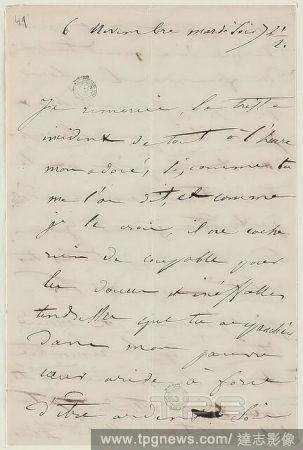 49
6 Novembre mardi soir 7 h 1/2.
Je remercie, le triste
incident de tout à l'heure
mon adoré, si, comme tu
me l'as dit et comme
je le crois, il ne cache
rien de coupable pour
les douces et ineffables
tendresses que tu as
dans mon pauvre
cœur aride à force
d'être ardent.
www.tpgnews.com/ 達志影像